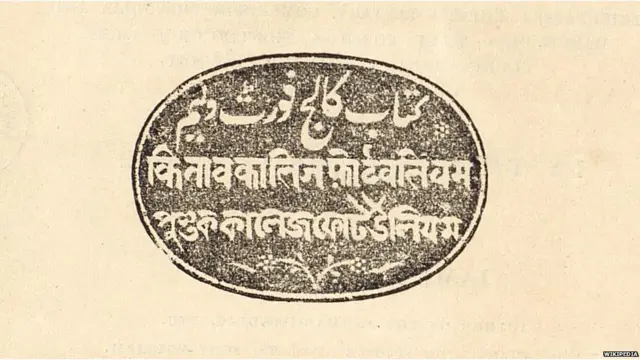 کتاب کالج فورٹ ولیم
किताव कालिज फ़ोर्ट वलियम
পুস্তক কালেজ ফোর্ট উলিয়ম
WIKIPEDIA